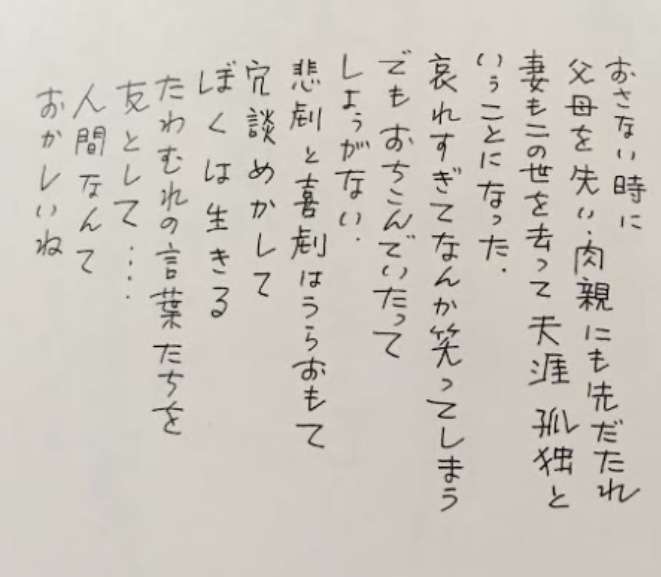 おさない時に
父母を失い.肉親にも先だたれ
妻もこの世を去って天涯孤独と
いうことになった.
哀れすぎてなんか笑ってしまう
でもおちこんでいたって
しょうがない.
悲劇と喜劇はうらおもて
冗談めかして
ぼくは生きる
たわむれの言葉たちを
友として....
人間なんて
おかしいね